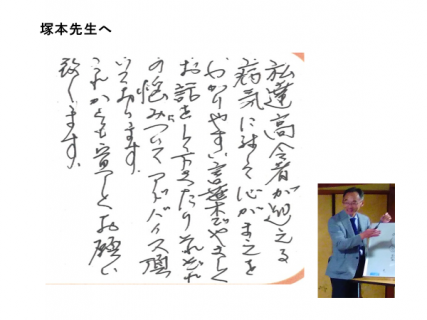 塚本先生へ
私達高令者が迎える
病気に対して心がまえを
わかりやすい言葉でやさしく
お話をして下さったりそれぞれ
の悩みについてアドバイス頂
いております。
これからも宜しくお願い
致します。